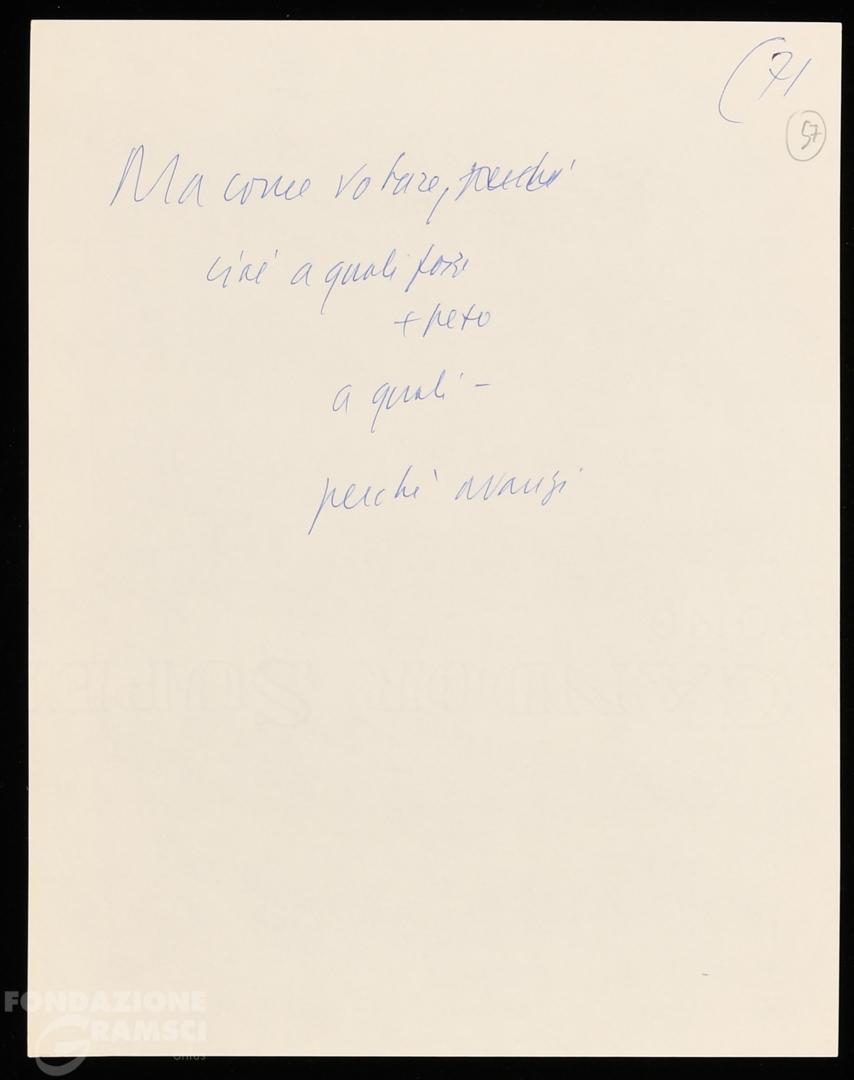 (71
57
Ma come votare, perché
cioè a quali forze
+ peso
a quali –
perché avanzi
FONDAZIONE
GRAMSCI
onlus